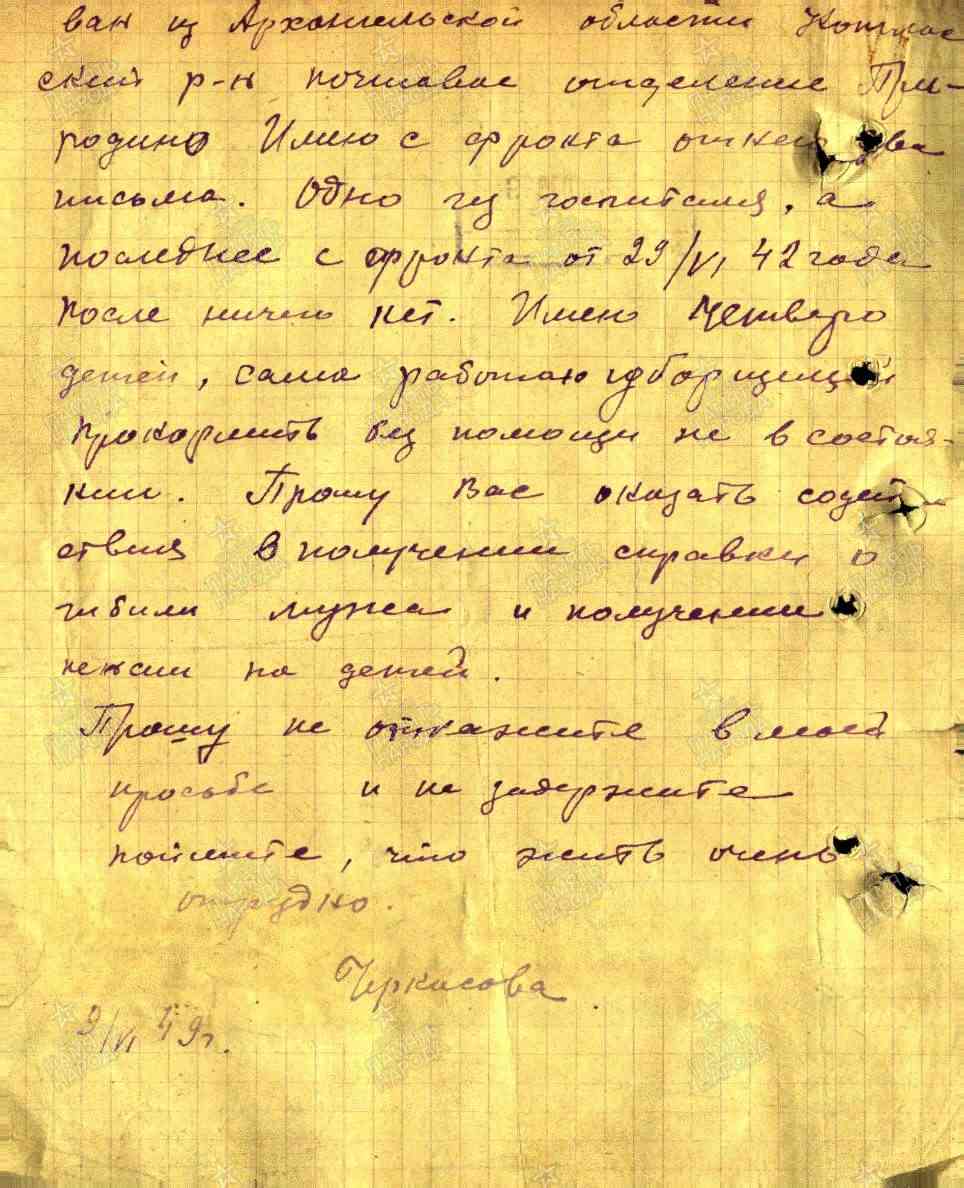 ван из Архангельской области Котлас
ский р-н почтовое отделение При-
родино Имею с фронта от него два
письма. Одно из госпиталя, а
последнее с фронта от 29/VI 42 года
после ничего нет. Имею четверо
детей, сама работаю уборщицей
прокормить без помощи не в состоя-
нии. Прошу Вас оказать содей
ствия в получении справки о
гибили мужа и получении
пенсии на детей.
Прошу не откажите в моей
просьбе и не задержите
поймите, что жить очень
трудно.
Черкасова
9/VI 49г.